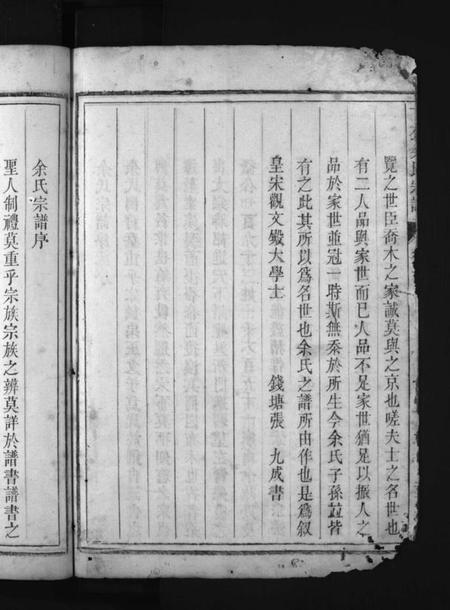 覽之世臣喬木之家誠莫與之京也嗟夫士之名世也
有二人品與家世而已人品不足家世猶足以振人之
品於家世並冠一時斯無忝於所生今余氏子孫並皆
有之此其所以爲名世也余氏之譜所由作也是爲叙
皇宋觀文殿大學士 錢塘張 九成書
余氏宗譜序
聖人制禮莫重乎宗族宗族之辨莫詳於譜書譜書之